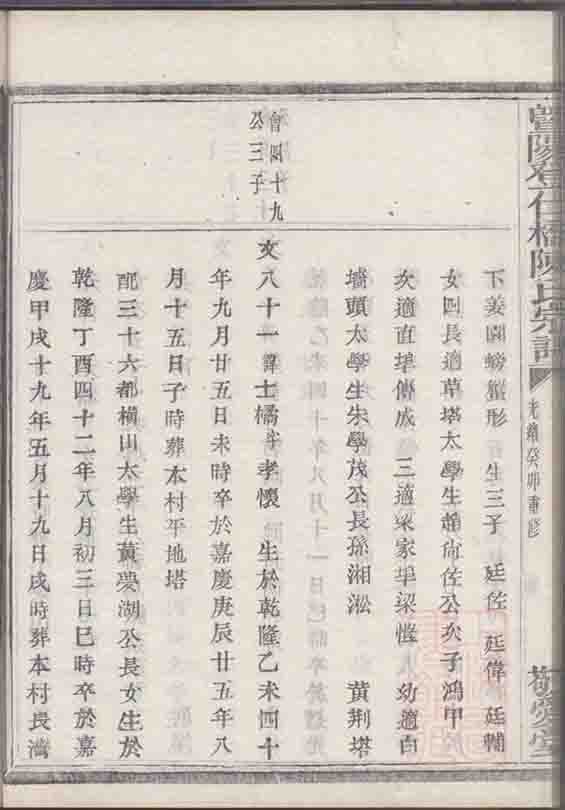 暨陽登仕橋陳氏宗譜
光緒癸卯重修
下姜園螃蟹形　生三子　廷佐　廷偉　廷輔
女四長適草塔太學生趙尚佐公次子鴻甲
次適直埠傅成　三適梁家埠梁　幼適白
墻頭太學生朱學茂公長孫湘淞　黃荆塔
會四十九
公三子
文八十一諱士橘字孝懷　生於乾隆乙未四十
年九月廿五日未時卒於嘉慶庚辰廿五年八
月十五日子時葬本村平地塔
配三十六都橫山太學生黃夢湖公長女生於
乾隆丁酉四十二年八月初三日巳時卒於嘉
慶甲戌十九年五月十九日戌時葬本村長灣